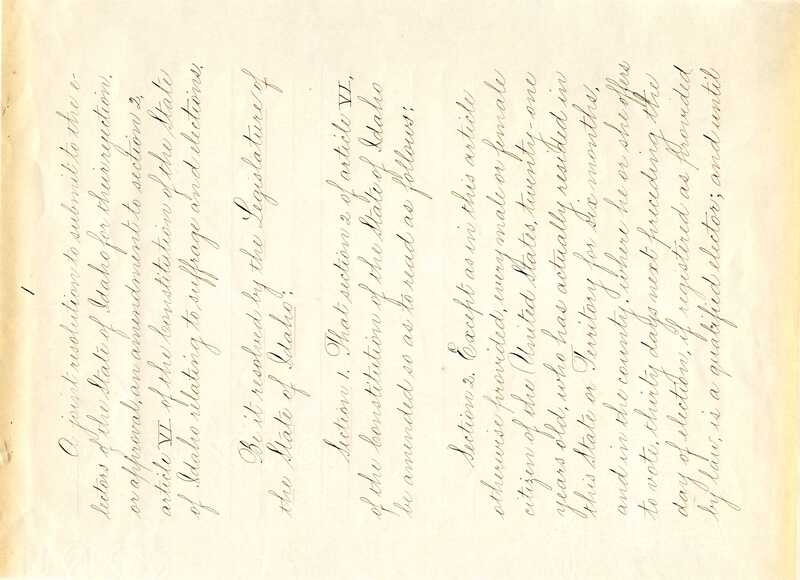 1
A joint resolution to submit to the e-
lectors of the State of Idaho for their rejection,
or approval, an amendment to section 2,
article VI of the Constitution of the State
of Idaho relating to suffrage and elections.
Be it resolved by the Legislature of
the State of Idaho:
Section 1. That section 2 of article VI,
of the Constitution of the State of Idaho
be amended so as to read as follows:
Section 2. Except as in this article
otherwise provided, every male or female
citizen of the United States, twenty-one
years old, who has actually resided in
this State or Territory for six months,
and in the county, where he or she offers
to vote, thirty days next preceding the
day of election, if registered as provided
by law, is a qualified elector; and until